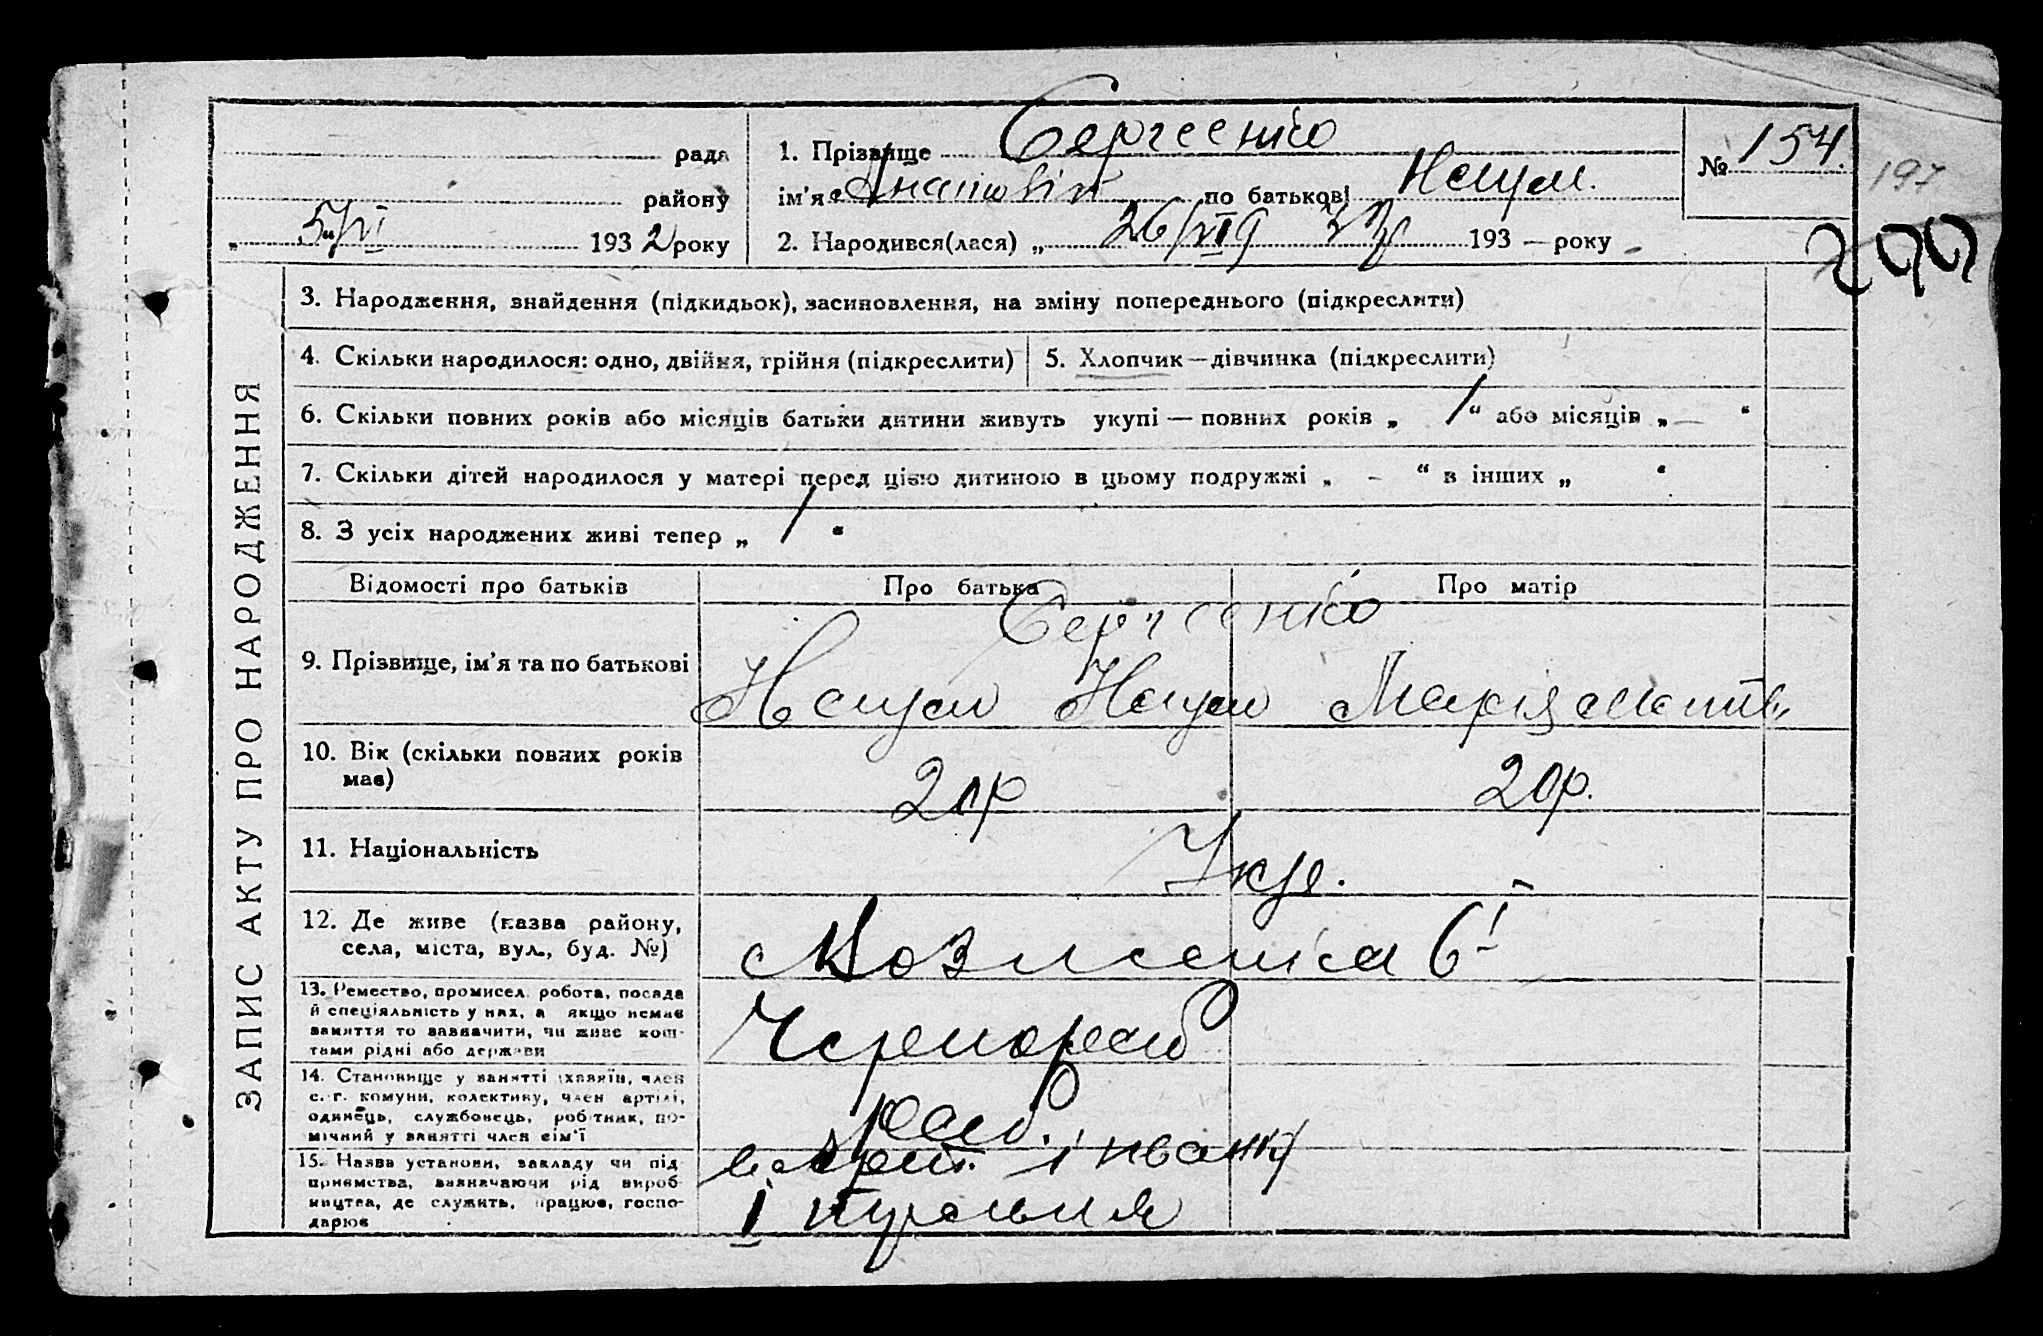 рада
району
5/VI 1932 року
1. Прізвище Сергеенко
ім'я Анатолій по батькові Наум.
2. Народився(лася) „ 26/VI 193 — року
№ 154.
197
200
ЗАПИС АКТУ ПРО НАРОДЖЕННЯ
3. Народження, знайдення (підкидьок), засиновлення, на зміну попереднього (підкреслити)
4. Скільки народилося: одно, двійня, трійня (підкреслити)
5. Хлопчик — дівчинка (підкреслити)
6. Скільки повних років або місяців батьки дитини живуть укупі — повних років „ 1 “ або місяців „ — “
7. Скільки дітей народилося у матері перед цією дитиною в цьому подружжі „ - “ в інших „ “
8. З усіх народжених живі тепер „ 1 “
Відомості про батьків
Про батька
Про матір
9. Прізвище, ім'я та по батькові
Сергеенко
Наум Наум
Марія
10. Вік (скільки повних років має)
20р.
11. Національність
Укр.
12. Де живе (назва району, села, міста, вул., буд. №)
13. Ремество, промисел, робота, посада й спеціяльність у них, а якщо немає заняття то зазначити, чи живе коштами рідні або держави
Чернораб
14. Становище у занятті (хазяїн, член с.-г. комуни, колективу, член артілі, одинець, службовець, робітник, помічний у занятті член сім'ї
раб.
15. Назва установи, закладу чи підприємства, зазначаючи рід виробництва, де служить, працює, господарює